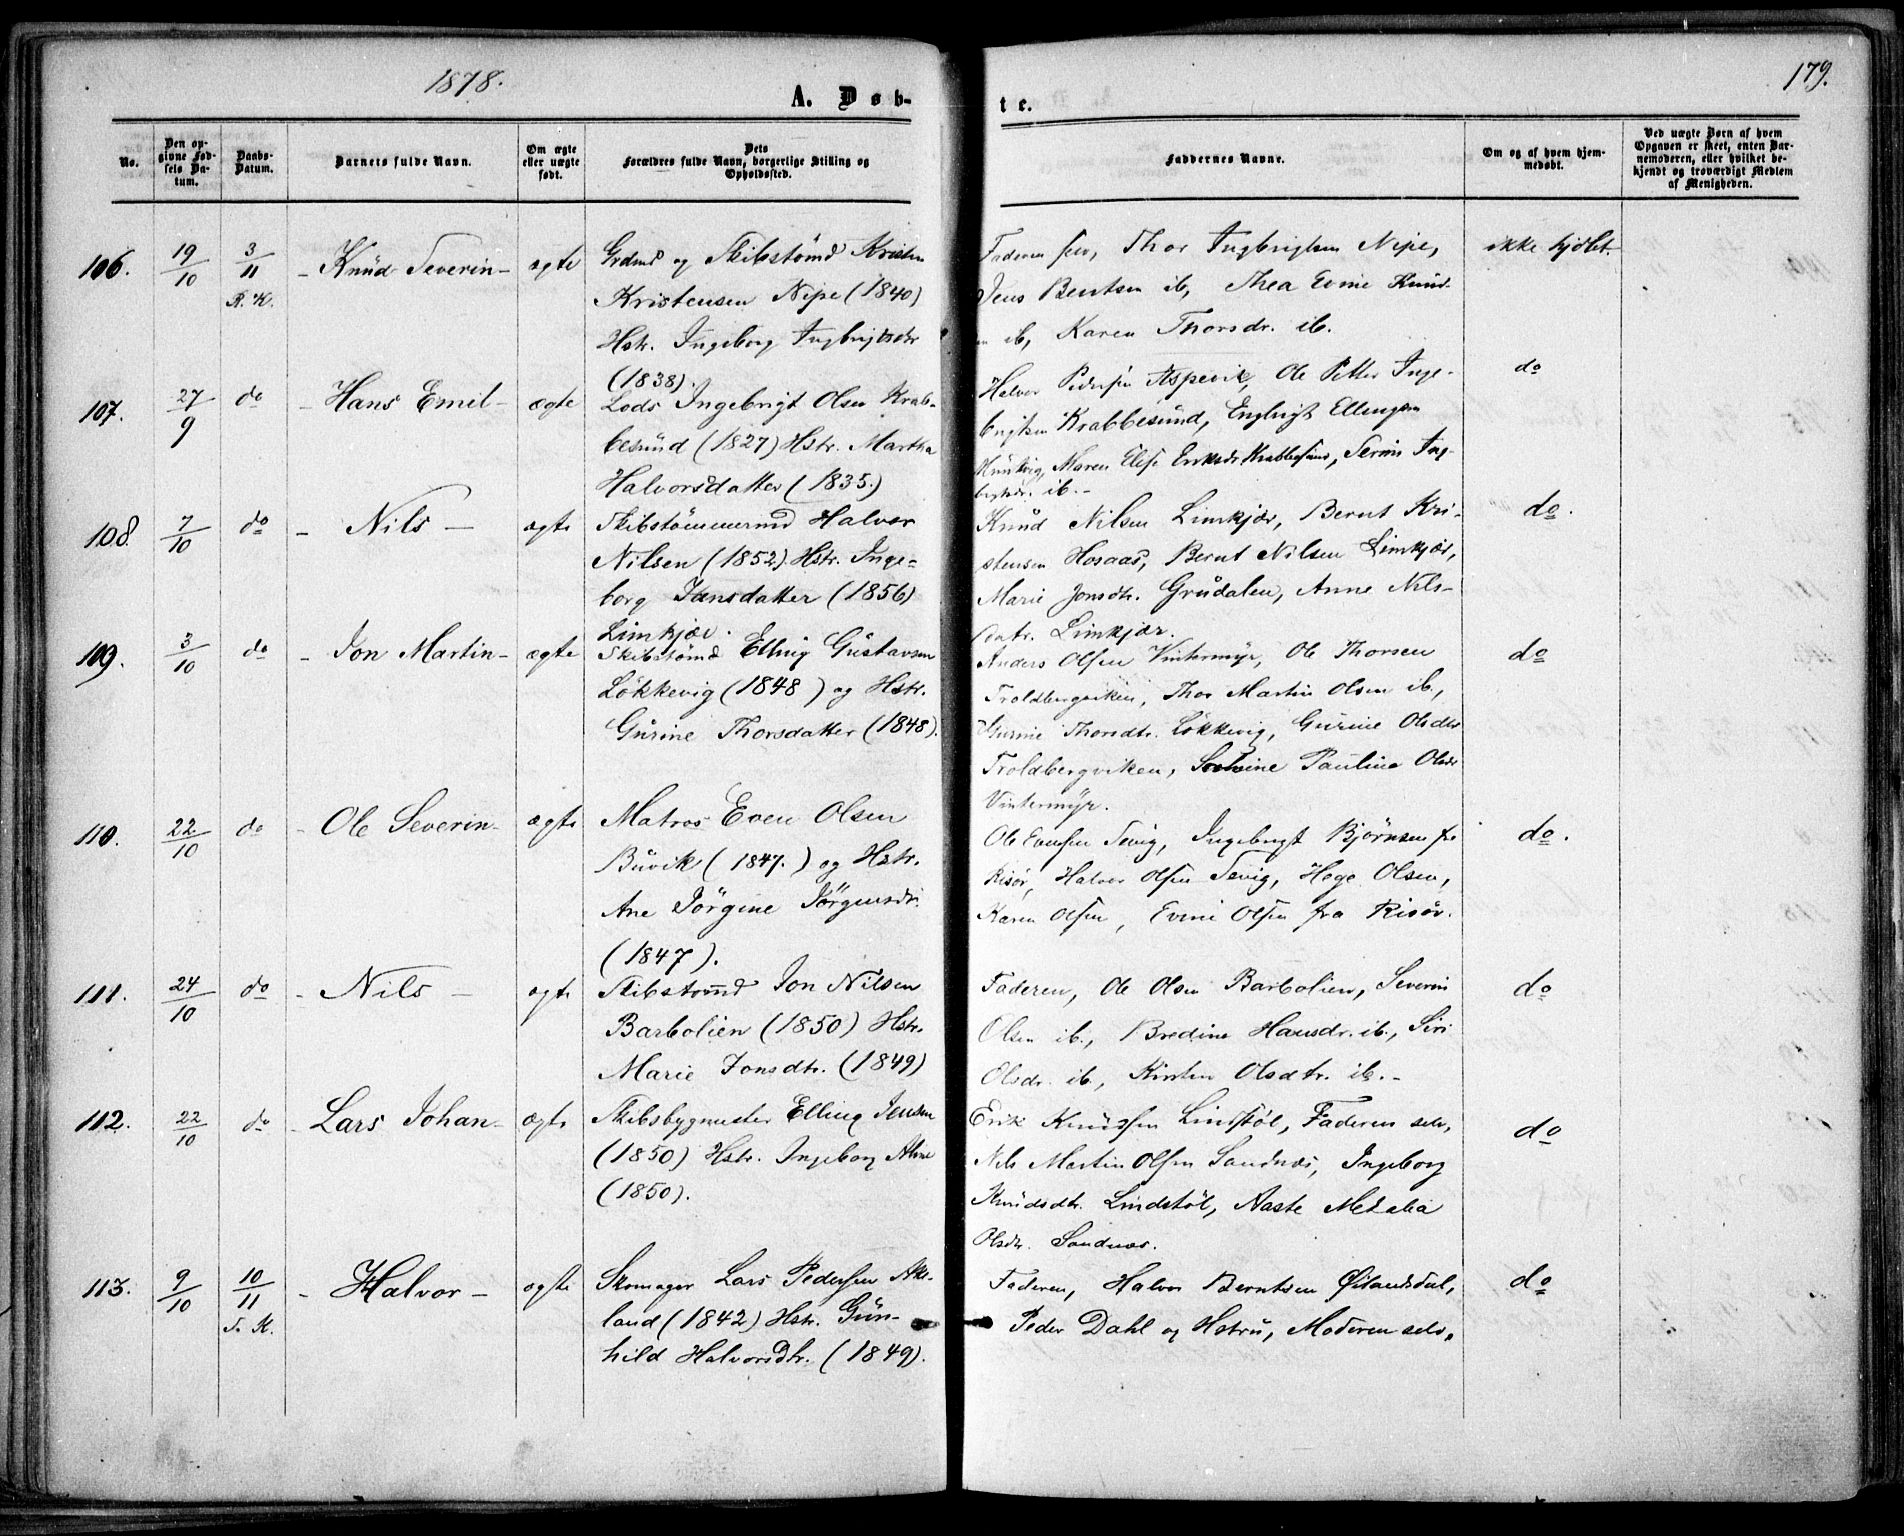 1878.
179.
A. Døb-
te.
No.
Den op-
givne Fød-
sels Da-
tum.
Daabs-
Datum.
Barnets fulde Navn.
Om ægte
eller uægte
født.
Dets
Forældres fulde Navn, borgerlige Stilling og
Opholdssted.
Faddernes Navne.
Om og af hvem hjem-
medøbt.
Ved uægte Børn af hvem
Opgaven er skeet, enten Bar-
nemoderen, eller hvilket be-
kjendt og troværdigt Medlem
af Menigheden.
106. 19/10 3/11 R. K. - Knud Severin - ægte
Grdmd og Skibstømd Kristen
Kristensen Nipe (1840)
Hstr. Ingeborg Ingbrigtsdtr
(1838).
Faderen selv, Thor Ingbrigtsen Nipe,
Jens Bentsen ib, Thea Evine Knud-
ib, Karen Thorsdr. ib.
ikke hjdbt.
107. 27/9 do - Hans Emil - ægte
Lods Ingebrigt Olsen Krab-
besund (1827) Hstr. Martha
Halvorsdatter (1835.)
Halvor Pedersen Aspevik, Ole Petter Inge-
brigtsen Krabbesund, Engbrigt Ellingsen
Maren Elise Eriksdr Krabbesund, Serine Ing-
brgtsdr. ib. -
do
108. 7/10 do - Nils - ægte
Skibstømmermd Halvor
Nilsen (1852) Hstr. Inge-
borg Jansdatter (1856)
Limkjær.
Knud Nilsen Limkjær, Bernt Kri-
stensen Hosaas, Bernt Nilsen Limkjær,
Marie Jonsdtr. Grudalen, Anne Nils-
datr. Limkjær.
do.
109. 3/10 do - Jon Martin - ægte
Skibstømd Elling Gustavsen
Løkkevig (1848) og Hstr.
Gurine Thorsdatter (1848).
Anders Olsen Vintermyr, Ole Thorsen
Troldbergviken, Thor Martin Olsen ib.,
Gurine Thorsdtr. Løkkevig, Gurine Olsdtr
Troldbergviken, Pauline Olsdr
Vintermyr.
do
110. 22/10 do - Ole Severin - ægte
Matros Even Olsen
Buvik (1847.) og Hstr.
Ane Jørgine Jørgensdr.
(1847).
Ole Evensen Sevig, Ingebrigt Bjørnsen fra
Risør, Halvor Olsen Sevig, Hege Olsen,
Karen Olsen, Evine Olsen fra Risør.
do.
111. 24/10 do - Nils - ægte
Skibstømd Jon Nilsen
Barbolien (1850) Hstr.
Marie Jonsdtr. (1849)
Faderen, Ole Olsen Barbolien, Severin
Olsen ib., Bredine Hansdr. ib., Siri
Olsdr. ib., Kirsten Olsdtr. ib. -
do
112. 22/10 do - Lars Johan - ægte
Skibsbygmester Elling Jensen
(1850) Hstr. Ingeborg Aline
(1850).
Erik Knudsen Lindstøl, Faderen selv,
Nils Martin Olsen Sandnæs, Ingeborg
Knudsdtr. Lindstøl, Aaste Metalia
Olsdtr. Sandnæs.
do
113. 9/10 10/11 S. K. - Halvor - ægte
Skomager Lars Pedersen Ake-
land (1842) Hstr. Gun-
hild Halvorsdtr. (1849).
Faderen, Halvor Berntsen Øilandsdal,
Peder Dahl og Hstru, Moderen selv.
do